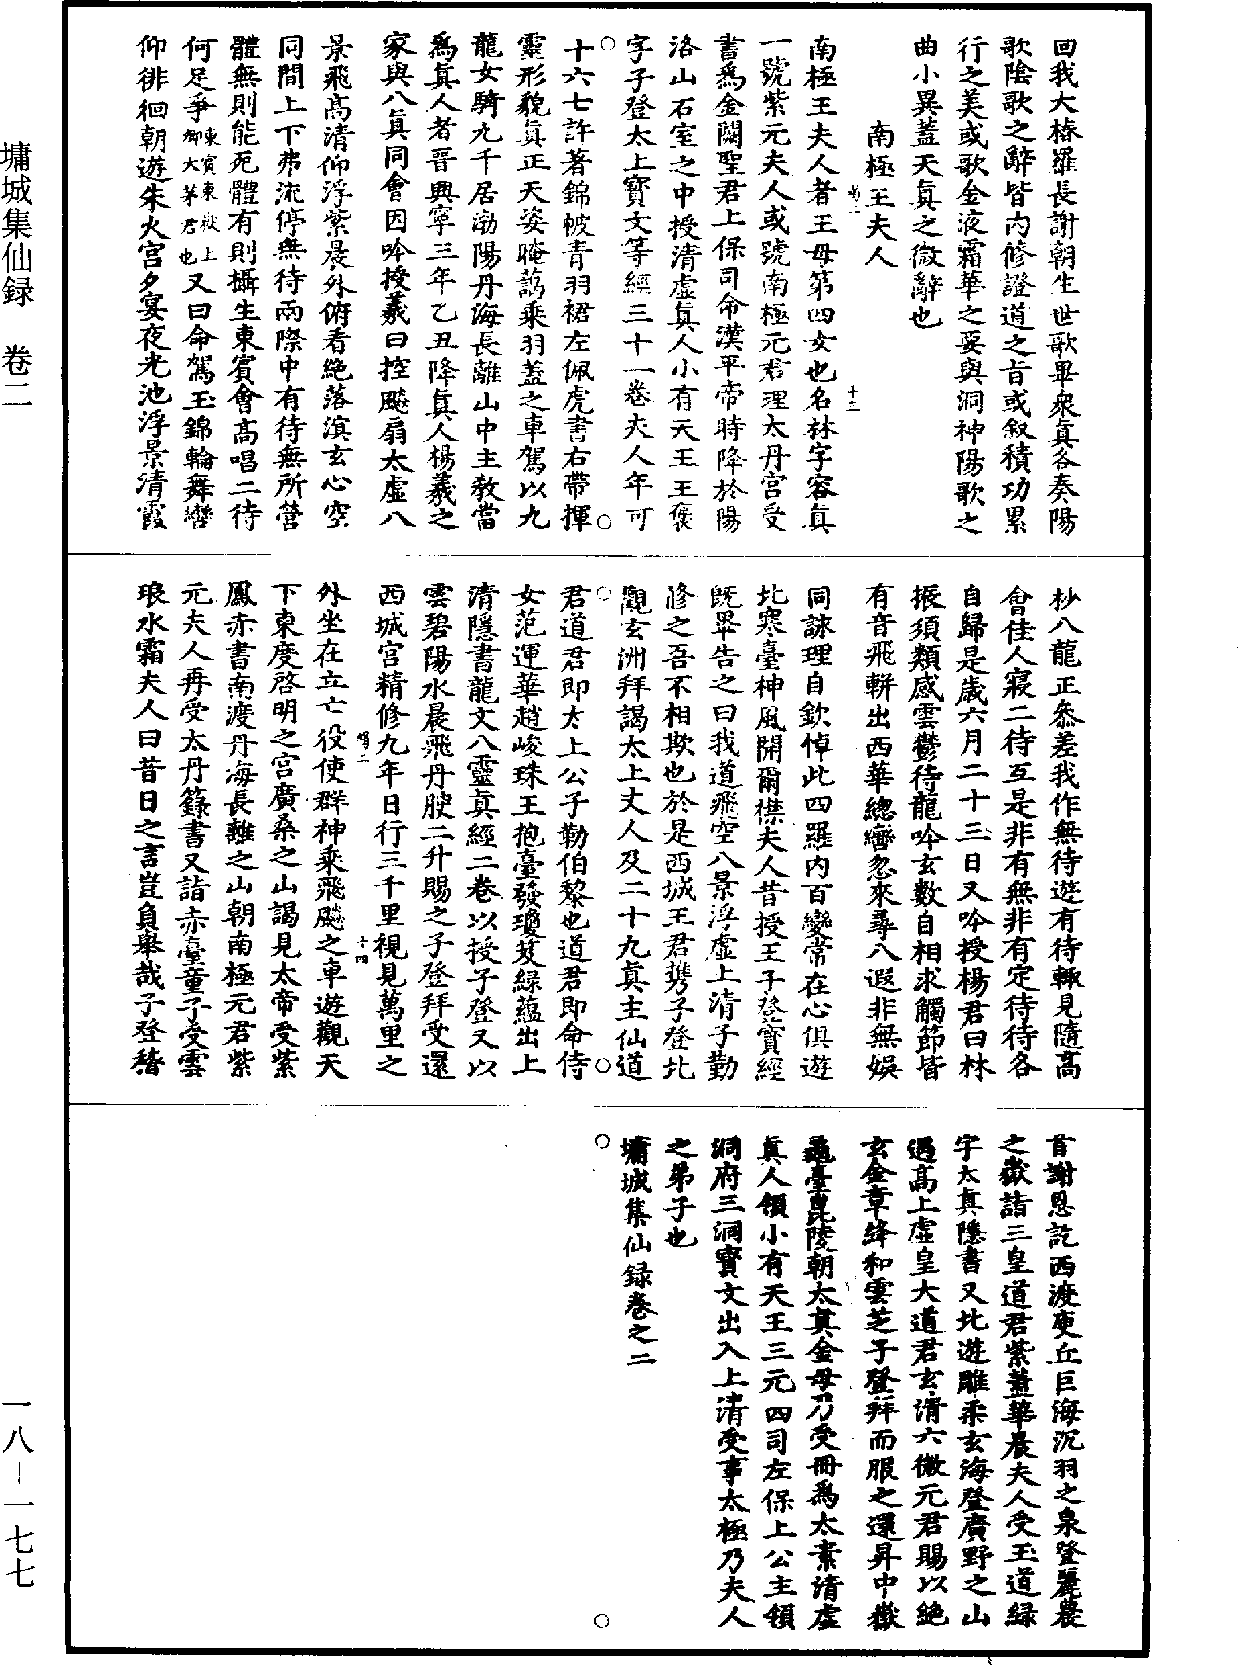 回我大椿羅長謝朝生世歌畢衆真各奏陽
歌陰歌之辭皆內修證道之旨或叙積功累
行之美或歌金液霜華之要與洞神陽歌之
曲小異蓋天真之微辭也
南極王夫人
南極王夫人者王母第四女也名林字容真
一號紫元夫人或號南極元君理太丹宮受
書爲金闕聖君上保司命漢平帝時降於陽
洛山石室之中授清虛真人小有天王王褒
字子登太上寶文等經三十一卷夫人年可
十六七許著錦帔青羽裙左佩虎書右帶揮
靈形貌真正天姿晻藹乘羽蓋之車駕以九
龍女騎九千居渤陽丹海長離山中主教當
爲真人者晉興寧三年乙丑降真人楊羲之
家與八真同會因吟授羲曰控飈扇太虛八
景飛高清仰浮紫晨外俯看絕落滨玄心空
同間上下弗流停無待兩際中有待無所營
體無則能死體有則攝生東賓會高唱二待
何足爭東賓東嶽上卿大茅君也又曰命駕玉錦輪舞轡
仰徘徊朝遊朱火宮夕宴夜光池浮景清霞
杪八龍正參差我作無待遊有待輒見隨高
會佳人寢二待互是非有無非有定待待各
自歸是歲六月二十三日又吟授楊君曰林
振須類感雲鬱待龍吟玄數自相求觸節皆
有音飛軿出西華總轡忽來尋八遐非無娛
同詠理自欽悼此四羅內百變常在心俱遊
北寒臺神風開爾襟夫人昔授王子登寶經
既畢告之曰我道飛空八景浮虛上清子勤
修之吾不相欺也於是西城王君携子登北
觀玄洲拜謁太上丈人及二十九真主仙道
君道君即太上公子勒伯黎也道君即命侍
女范運華趙峻珠王抱臺發瓊笈綠蘊出上
清隱書龍文八靈真經二卷以授子登又以
雲碧陽水晨飛丹腴二升賜之子登拜受還
西城宮精修九年日行三千里視見萬里之
外坐在立亡役使群神乘飛飈之車遊觀天
下東度啓明之宮廣桑之山謁見太帝受紫
鳳赤書南渡丹海長離之山朝南極元君紫
元夫人再受太丹籙書又詣赤臺童子受雲
琅水霜夫人曰昔日之言豈負舉哉子登稽
首謝恩訖西渡庾丘巨海沉羽之泉登麗農
之嶽詣三皇道君紫蓋華晨夫人受玉道綠
字太真隱書又北遊雕柔玄海登廣野之山
過高上虛皇大道君玄清六微元君賜以絕
玄金章絳和雲芝子登拜而服之還昇中嶽
龜臺毘陵朝太真金母乃受冊爲太素清虛
真人領小有天王三元四司左保上公主領
洞府三洞寶文出入上清受事太極乃夫人
之弟子也
墉城集仙録卷之二
墉城集仙録 卷二
一八－一七七